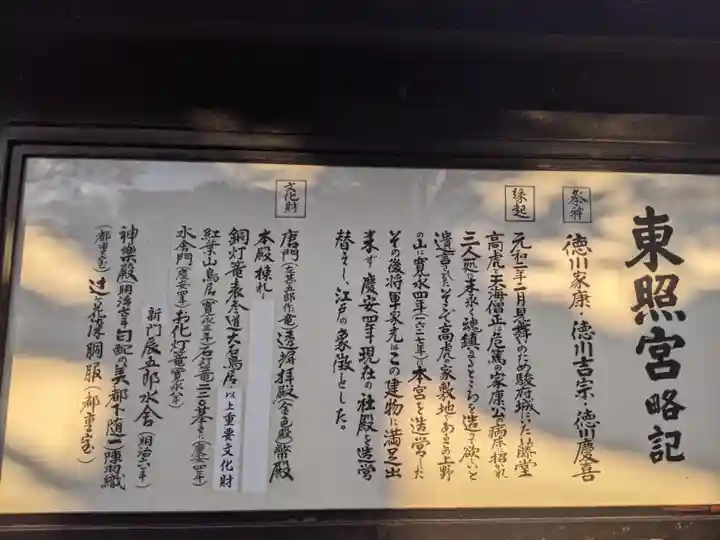 東照宮略記
祭神
徳川家康・徳川吉宗・徳川慶喜
縁起
元和二年二月見舞のため駿府城にいた藤堂
高虎と天海僧正は危篤の家康公の病床に招かれ
三人一処に末永く魂鎮まるところを造って欲しいと
遺言された。そこで高虎の家敷地であるこの上野
の山に寛永四年(一六二七年)に本宮を造営した
その後将軍家光はこの建物に満足出
来ず慶安四年現在の社殿を造営
替えし、江戸の象徴とした。
文化財
唐門(左甚五郎作竜)透塀拝殿(金色殿)幣殿
本殿 棟札
銅灯篭 表参道 大石鳥居
以上重要文化財
紅葉山鳥居(寛永三年)石灯篭二二〇基(慶安四年)
水舎門(慶安四年)お化灯篭(寛永八年)
新門辰五郎水舎(明治六年)
神楽殿(明治七年)白蛇の美都下随一 陣羽織
(都重宝)辻ヶ花染胴服(都重宝)